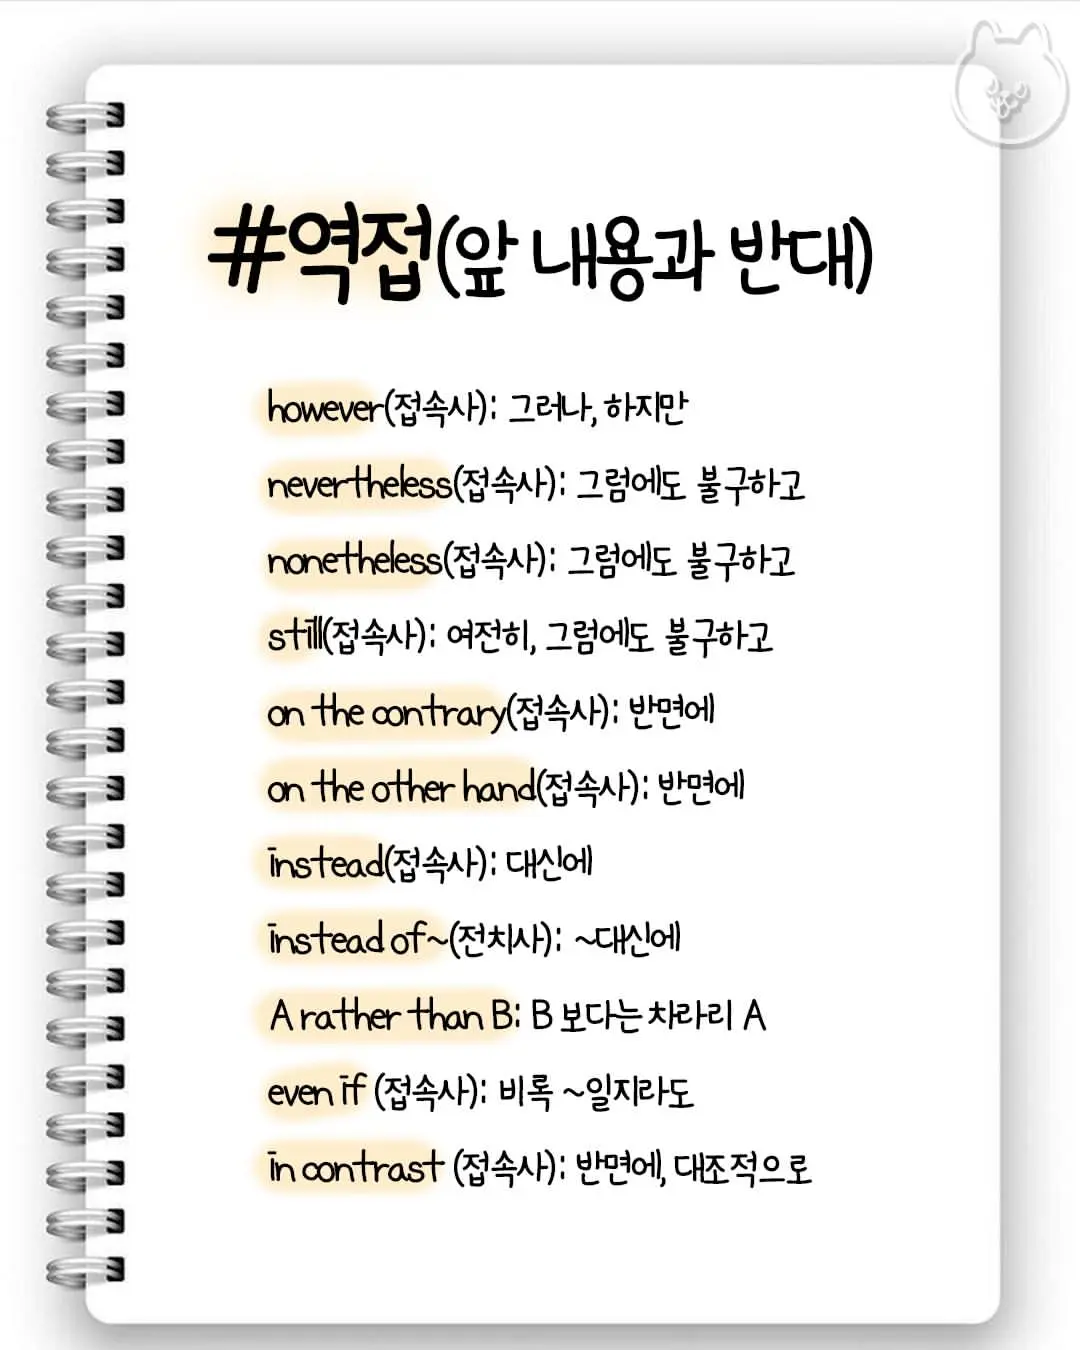 #역접(앞 내용과 반대)
however(접속사): 그러나, 하지만
nevertheless(접속사): 그럼에도 불구하고
nonetheless(접속사): 그럼에도 불구하고
still(접속사): 여전히, 그럼에도 불구하고
on the contrary(접속사): 반면에
on the other hand(접속사): 반면에
instead(접속사): 대신에
instead of~(전치사): ~대신에
A rather than B: B 보다는 차라리 A
even if (접속사): 비록 ~일지라도
in contrast (접속사): 반면에, 대조적으로